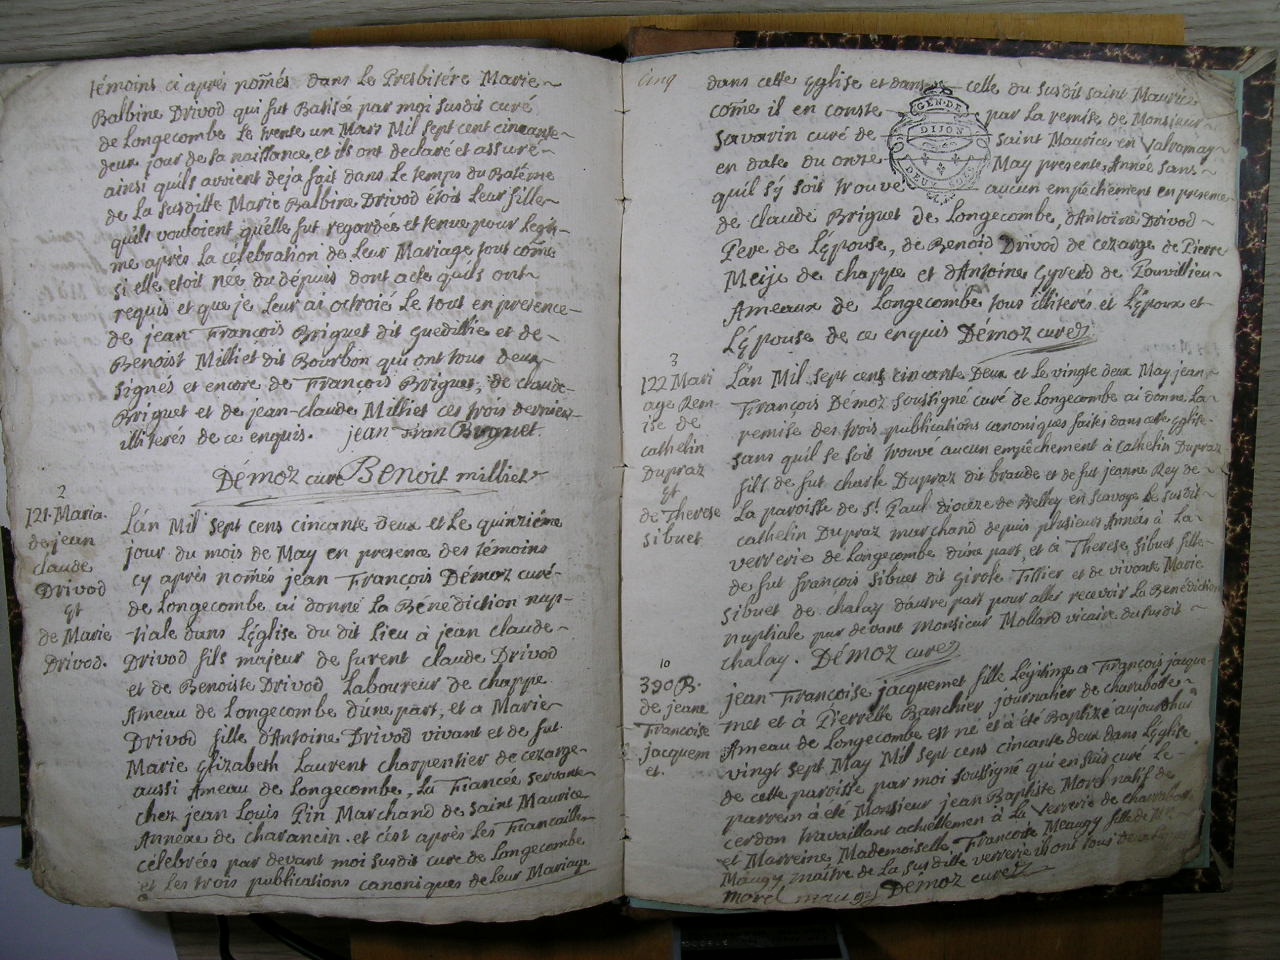 témoins ci après nom̃és dans Le Presbitére Marie
Balbine Drivod qui fut Batisée par moi susdit curé
de Longecombe Le trente un Mars Mil sept cent cincante
deux jour de sa naissance, et ils ont declaré et assuré
ainsi quils avoient deja fait dans Le temps du Batéme
de La susditte Marie Balbine Drivod étois Leur fille
quils vouloient quelle fut regardée et tenue pour Legit-
me après La celebration de Leur Mariage tout com̃e
si elle etoit née du dépuis dont acte quils ont
requis et que je Leur ai octroié Le tout en presence
de jean François Briguet dit guedillie et de
Benoist Milliet dit Bourbon qui ont tous deux
signés et encore de François Briguet, de claude
Briguet et de jean-claude Milliet ces trois derniers
illiterés de ce enquis. jean fran Briguet
Démoz curé Benoit milliet
2
121. Maria.
de jean
claude
Drivod
Et
de Marie
Drivod.
L'án Mil sept cens cincante deux et Le quinziéme
jour du mois de May en presence des témoins
cy après nom̃és jean François Démoz curé
de Longecombe ai donné La Bénédiction nup-
tiale dans L'Eglise du dit Lieu à jean claude
Drivod fils majeur de furent claude Drivod
et de Benoiste Drivod Laboureur de chappe
Ameau de Longecombe d'une part, et a Marie
Drivod fille d'Antoine Drivod vivant et de fut
Marie Elizabeth Laurent charpentier de cezarge
aussi Ameau de Longecombe, La fiancée servante
chez jean Louis Pin Marchand de Saint Maurice
Annexe de charancin. et c'est après Les Fiancailles
célebrées par devant moi susdit curé de Longecombe
et Les trois publications canoniques de Leur Mariage
Cinq
dans cette Eglise et dans celle du susdit Saint Maurice
com̃e il en conste par La remise de Monsieur
Savarin curé de Saint Maurice en Valromay
en date du onze May presente Année sans
quil s'y soit trouvé aucun empéchement en presence
GEN. DE
DIJON
DEUX SOLS
de claude Briguet de Longecombe, d'Antoine Drivod
Pere de L'Epouse, de Benoid Drivod de cezarge de Pierre
Meije de chappe et d'Antoine Gyverd de
Ameaux de Longecombe tous illiterés et L'Epoux et
L'Epouse de ce enquis Démoz curé
3
122 Mari
age Rem-
ise de
cathelin
Dupraz
Et
de Therese
Sibuet
L'án Mil sept cens cincante Deux et Le vingte deux May jean
François Démoz soussigné curé de Longecombe ai donné La
remise des trois publications canoniques faites dans cette Eglise
sans quil se soit trouvé aucun empéchement à cathelin Dupraz
fils de fut charle Dupraz dit braude et de fut jeanne Rey de
La paroisse de St. Paul diocèze de Belley en Savoye Le susdit
cathelin Dupraz marchand depuis plusieurs Années à La
verrerie de Longecombe d'une part et à Therese Sibuet fille
de fut françois Sibuet dit Girole Tillier et de vivante Marie
Sibuet de chalay d'autre part pour aller recevoir La Benédiction
nuptiale par devant Monsieur Mollard vicaire du susdit
chalay. Démoz curé
10
390 B.
de jeane
Francoise
jacquem
et.
jean Françoise jacquemet fille Légitime a François jacque-
met et à Pierrette Banchier journalier de charabotte
Ameau de Longecombe est né et à été Baptizé aujourdhui
vingt sept May Mil sept cens cincante deux dans L'Eglise
de cette paroisse par moi soussigné qui en suis curé Le
parrein à été Monsieur jean Baptiste Morel natif de
cerdon travaillant actuellemen à La verrerie de charabotte
et Marreine Mademoiselle Francoise Meaugy fille de
Maugy maitre de La susditte verrerie ils ont tous
morel maugy Démoz curé